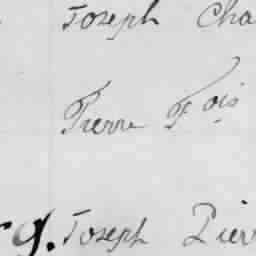 Joseph Cha
Pierre Fois
rg. Joseph Pier